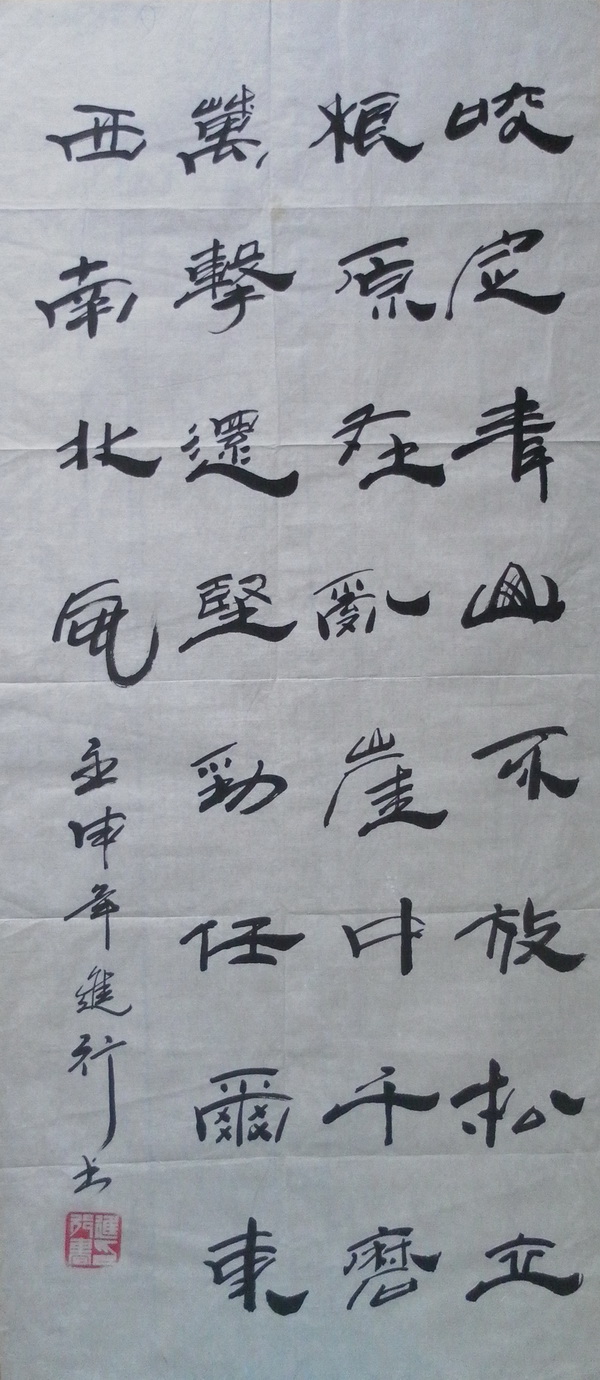 咬定青山不放松立
根原在亂崖中千磨
萬擊還堅勁任爾東
西南北風 壬申年進行书